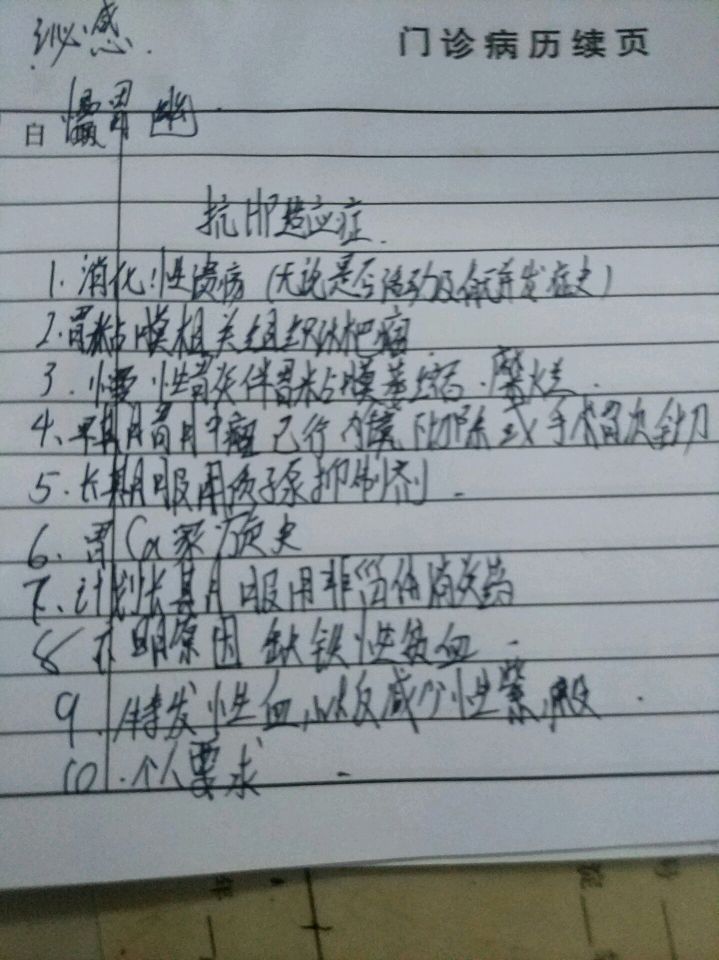 泌感
门诊病历续页
白 慢胃 幽
抗HP适应症
1. 消化性溃疡(无论是否活动及有无并发症史)
2. 胃粘膜相关组织淋巴瘤
3. 慢性胃炎伴胃粘膜萎缩、糜烂.
4、早期胃肿瘤已行内镜下切除或手术胃次全切
5. 长期服用质子泵抑制剂.
6. 胃Ca家族史
7、计划长期服用非甾体消炎药
8 不明原因缺铁性贫血.
9. 特发性血小板减少性紫癜.
10. 个人要求.